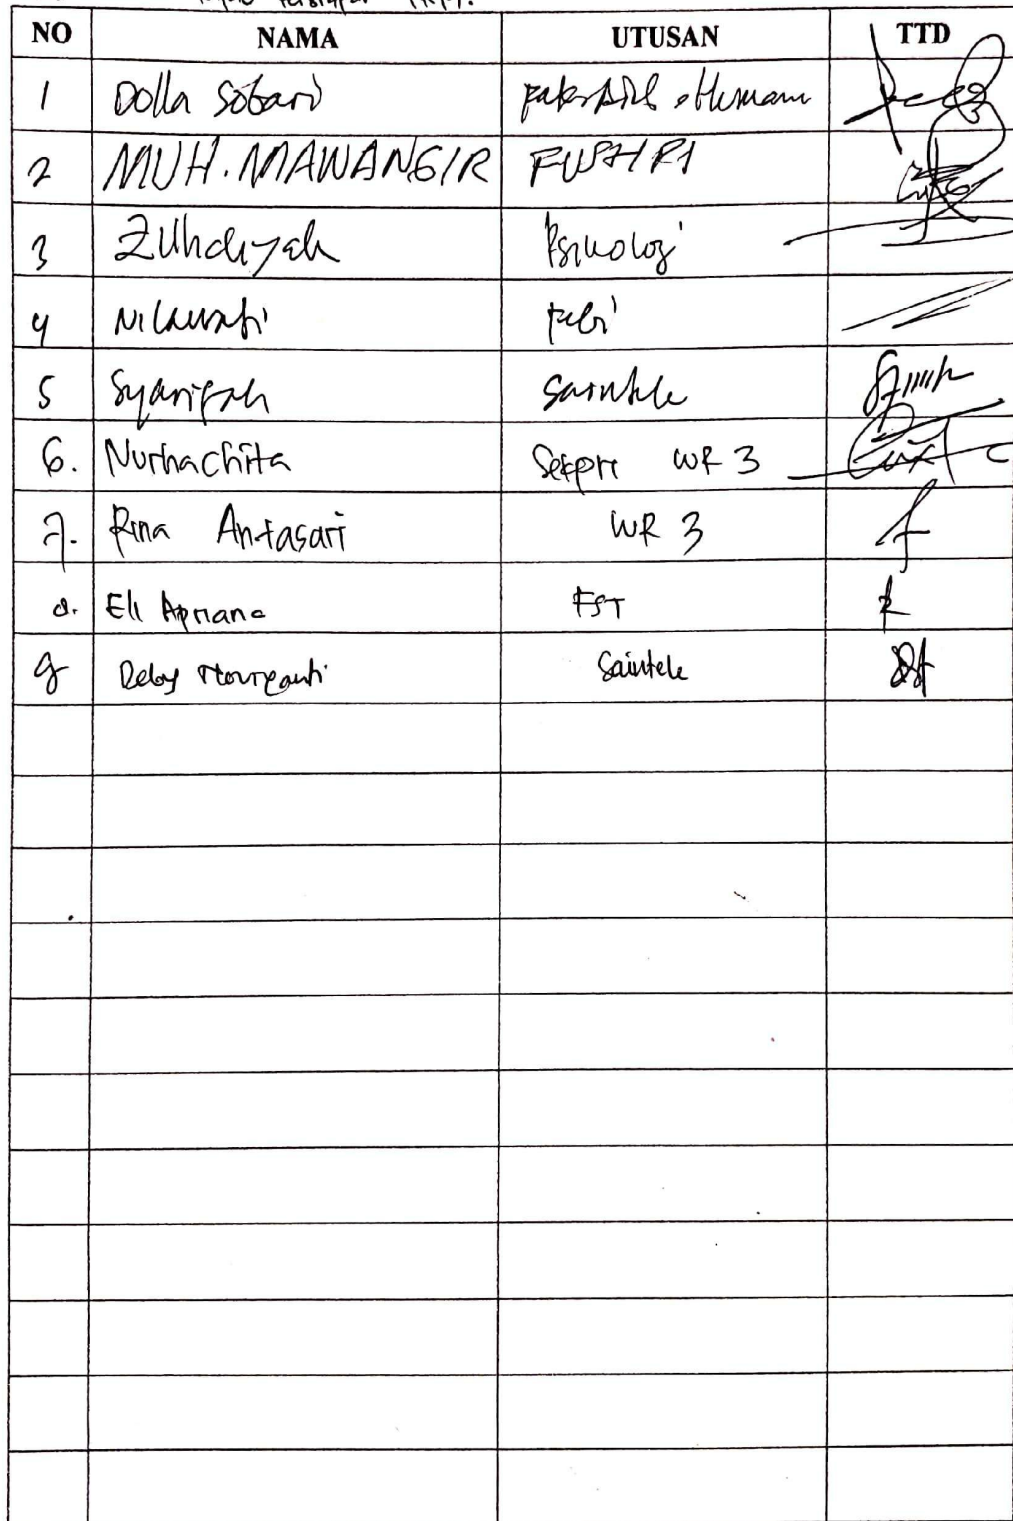 NO NAMA UTUSAN TTD
1 Dolla Sobari
2 MUH. MAWANGIR FUSHPI
3 Zuhdiyah Psikologi
4 Nilawati Febi
5 Syarifah Saintek
6. Nurhachita Sekpri WR 3
7. Rina Antasari WR 3
8. Eli Apriana FST
9 Deby Saintek